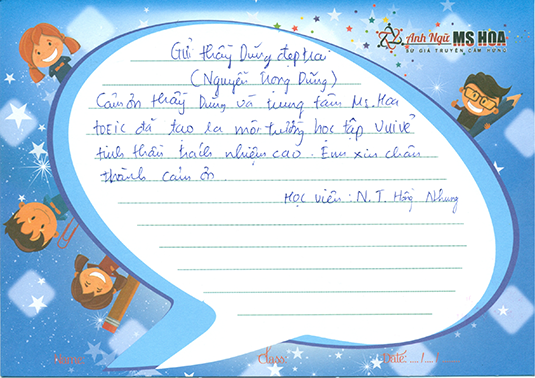 Anh Ngữ MS HOA
SỨ GIẢ TRUYỀN CẢM HỨNG
Gửi thầy Dũng đẹp trai
(Nguyễn Trọng Dũng)
Cảm ơn thầy Dũng và trung tâm Ms. Hoa
TOEIC đã tạo ra môi trường học tập vui vẻ
tinh thần trách nhiệm cao. Em xin chân
thành cảm ơn.
Học viên: N.T. Hồng Nhung
Name: Class: Date: ..../..../....